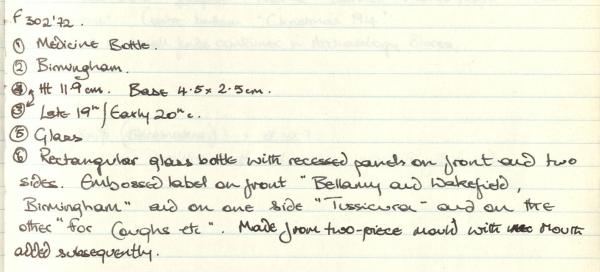 F 302'72.
① Medicine Bottle.
② Birmingham.
④ Ht 11.9cm. Base 4.5 x 2.5cm.
③ Late 19th/Early 20th c.
⑤ Glass
⑥ Rectangular glass bottle with recessed panels on front and two
sides. Embossed label on front "Bellamy and Wakefield,
Birmingham" and on one side "Tussicura" and on the
other "for Coughs etc". Made from two-piece mould with mouth
added subsequently.